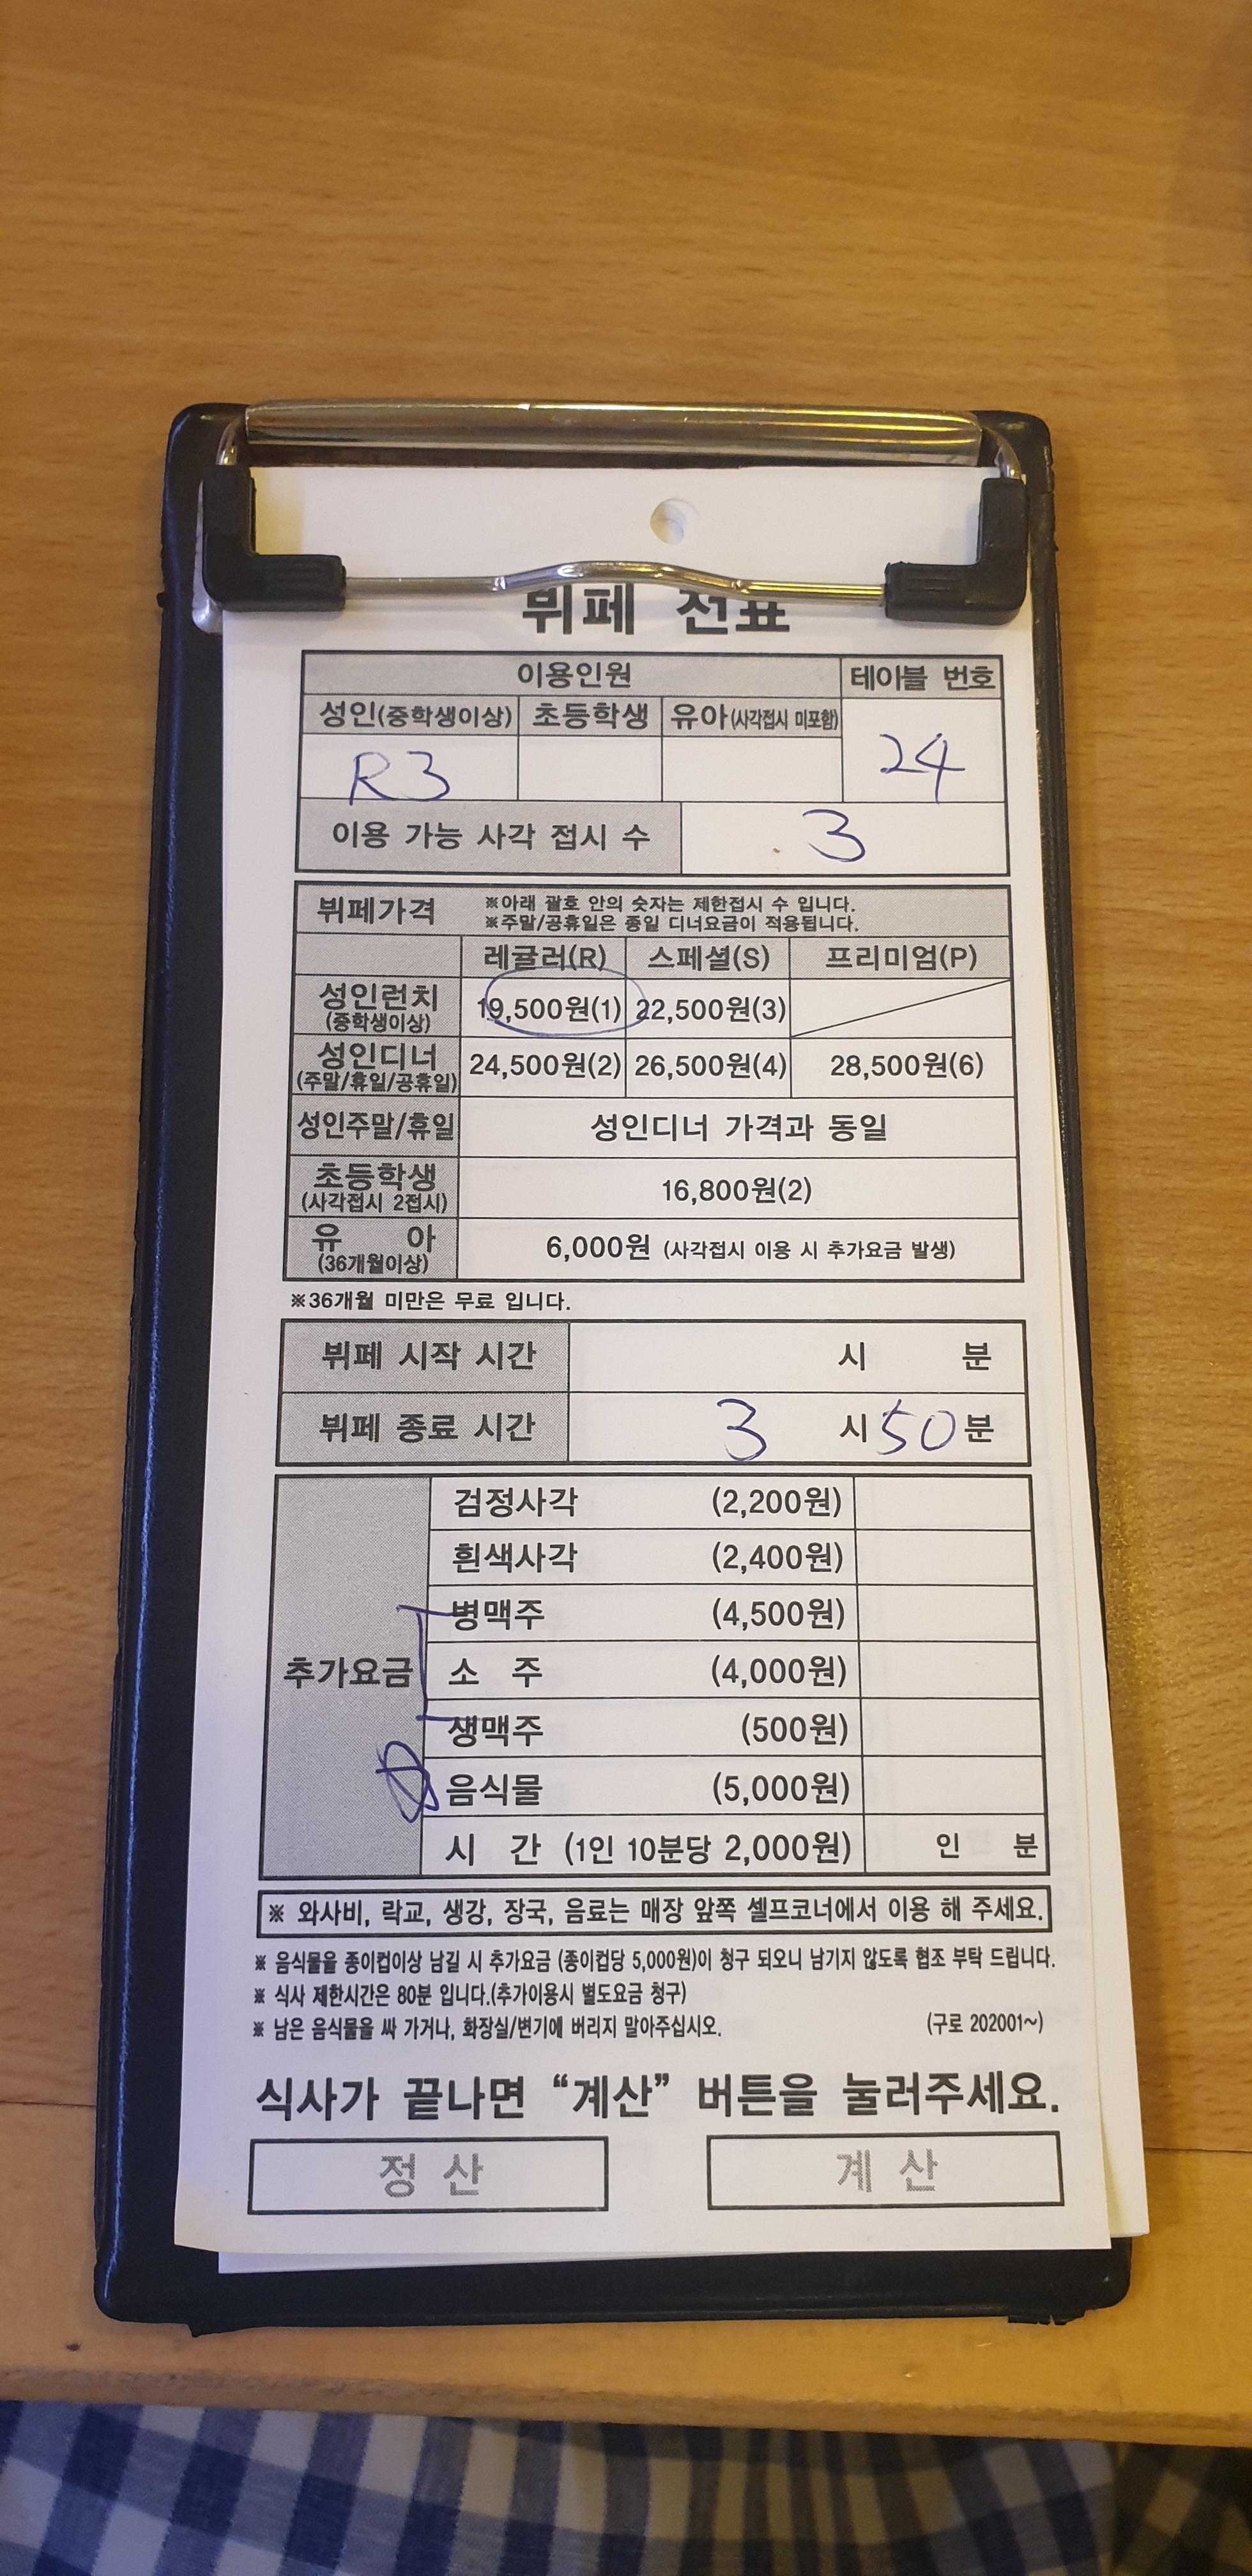 뷔페 전표
이용인원 테이블 번호
성인(중학생이상) 초등학생 유아(사각접시 미포함)
R3 24
이용 가능 사각 접시 수 3
뷔페가격 ※아래 괄호 안의 숫자는 제한접시 수 입니다.
※주말/공휴일은 종일 디너요금이 적용됩니다.
레귤러(R) 스페셜(S) 프리미엄(P)
성인런치 19,500원(1) 22,500원(3)
(중학생이상)
성인디너 24,500원(2) 26,500원(4) 28,500원(6)
(주말/휴일/공휴일)
성인주말/휴일 성인디너 가격과 동일
초등학생 16,800원(2)
(사각접시 2접시)
유 아 6,000원 (사각접시 이용 시 추가요금 발생)
(36개월이상)
※36개월 미만은 무료 입니다.
뷔페 시작 시간 시 분
뷔페 종료 시간 3 시 50 분
검정사각 (2,200원)
흰색사각 (2,400원)
병맥주 (4,500원)
추가요금 소 주 (4,000원)
생맥주 (500원)
음식물 (5,000원)
시 간 (1인 10분당 2,000원) 인 분
※ 와사비, 락교, 생강, 장국, 음료는 매장 앞쪽 셀프코너에서 이용 해 주세요.
※ 음식물을 종이컵이상 남길 시 추가요금 (종이컵당 5,000원)이 청구 되오니 남기지 않도록 협조 부탁 드립니다.
※ 식사 제한시간은 80분 입니다.(추가이용시 별도요금 청구)
※ 남은 음식물을 싸 가거나, 화장실/변기에 버리지 말아주십시오. (구로 202001~)
식사가 끝나면 “계산” 버튼을 눌러주세요.
정 산 계 산